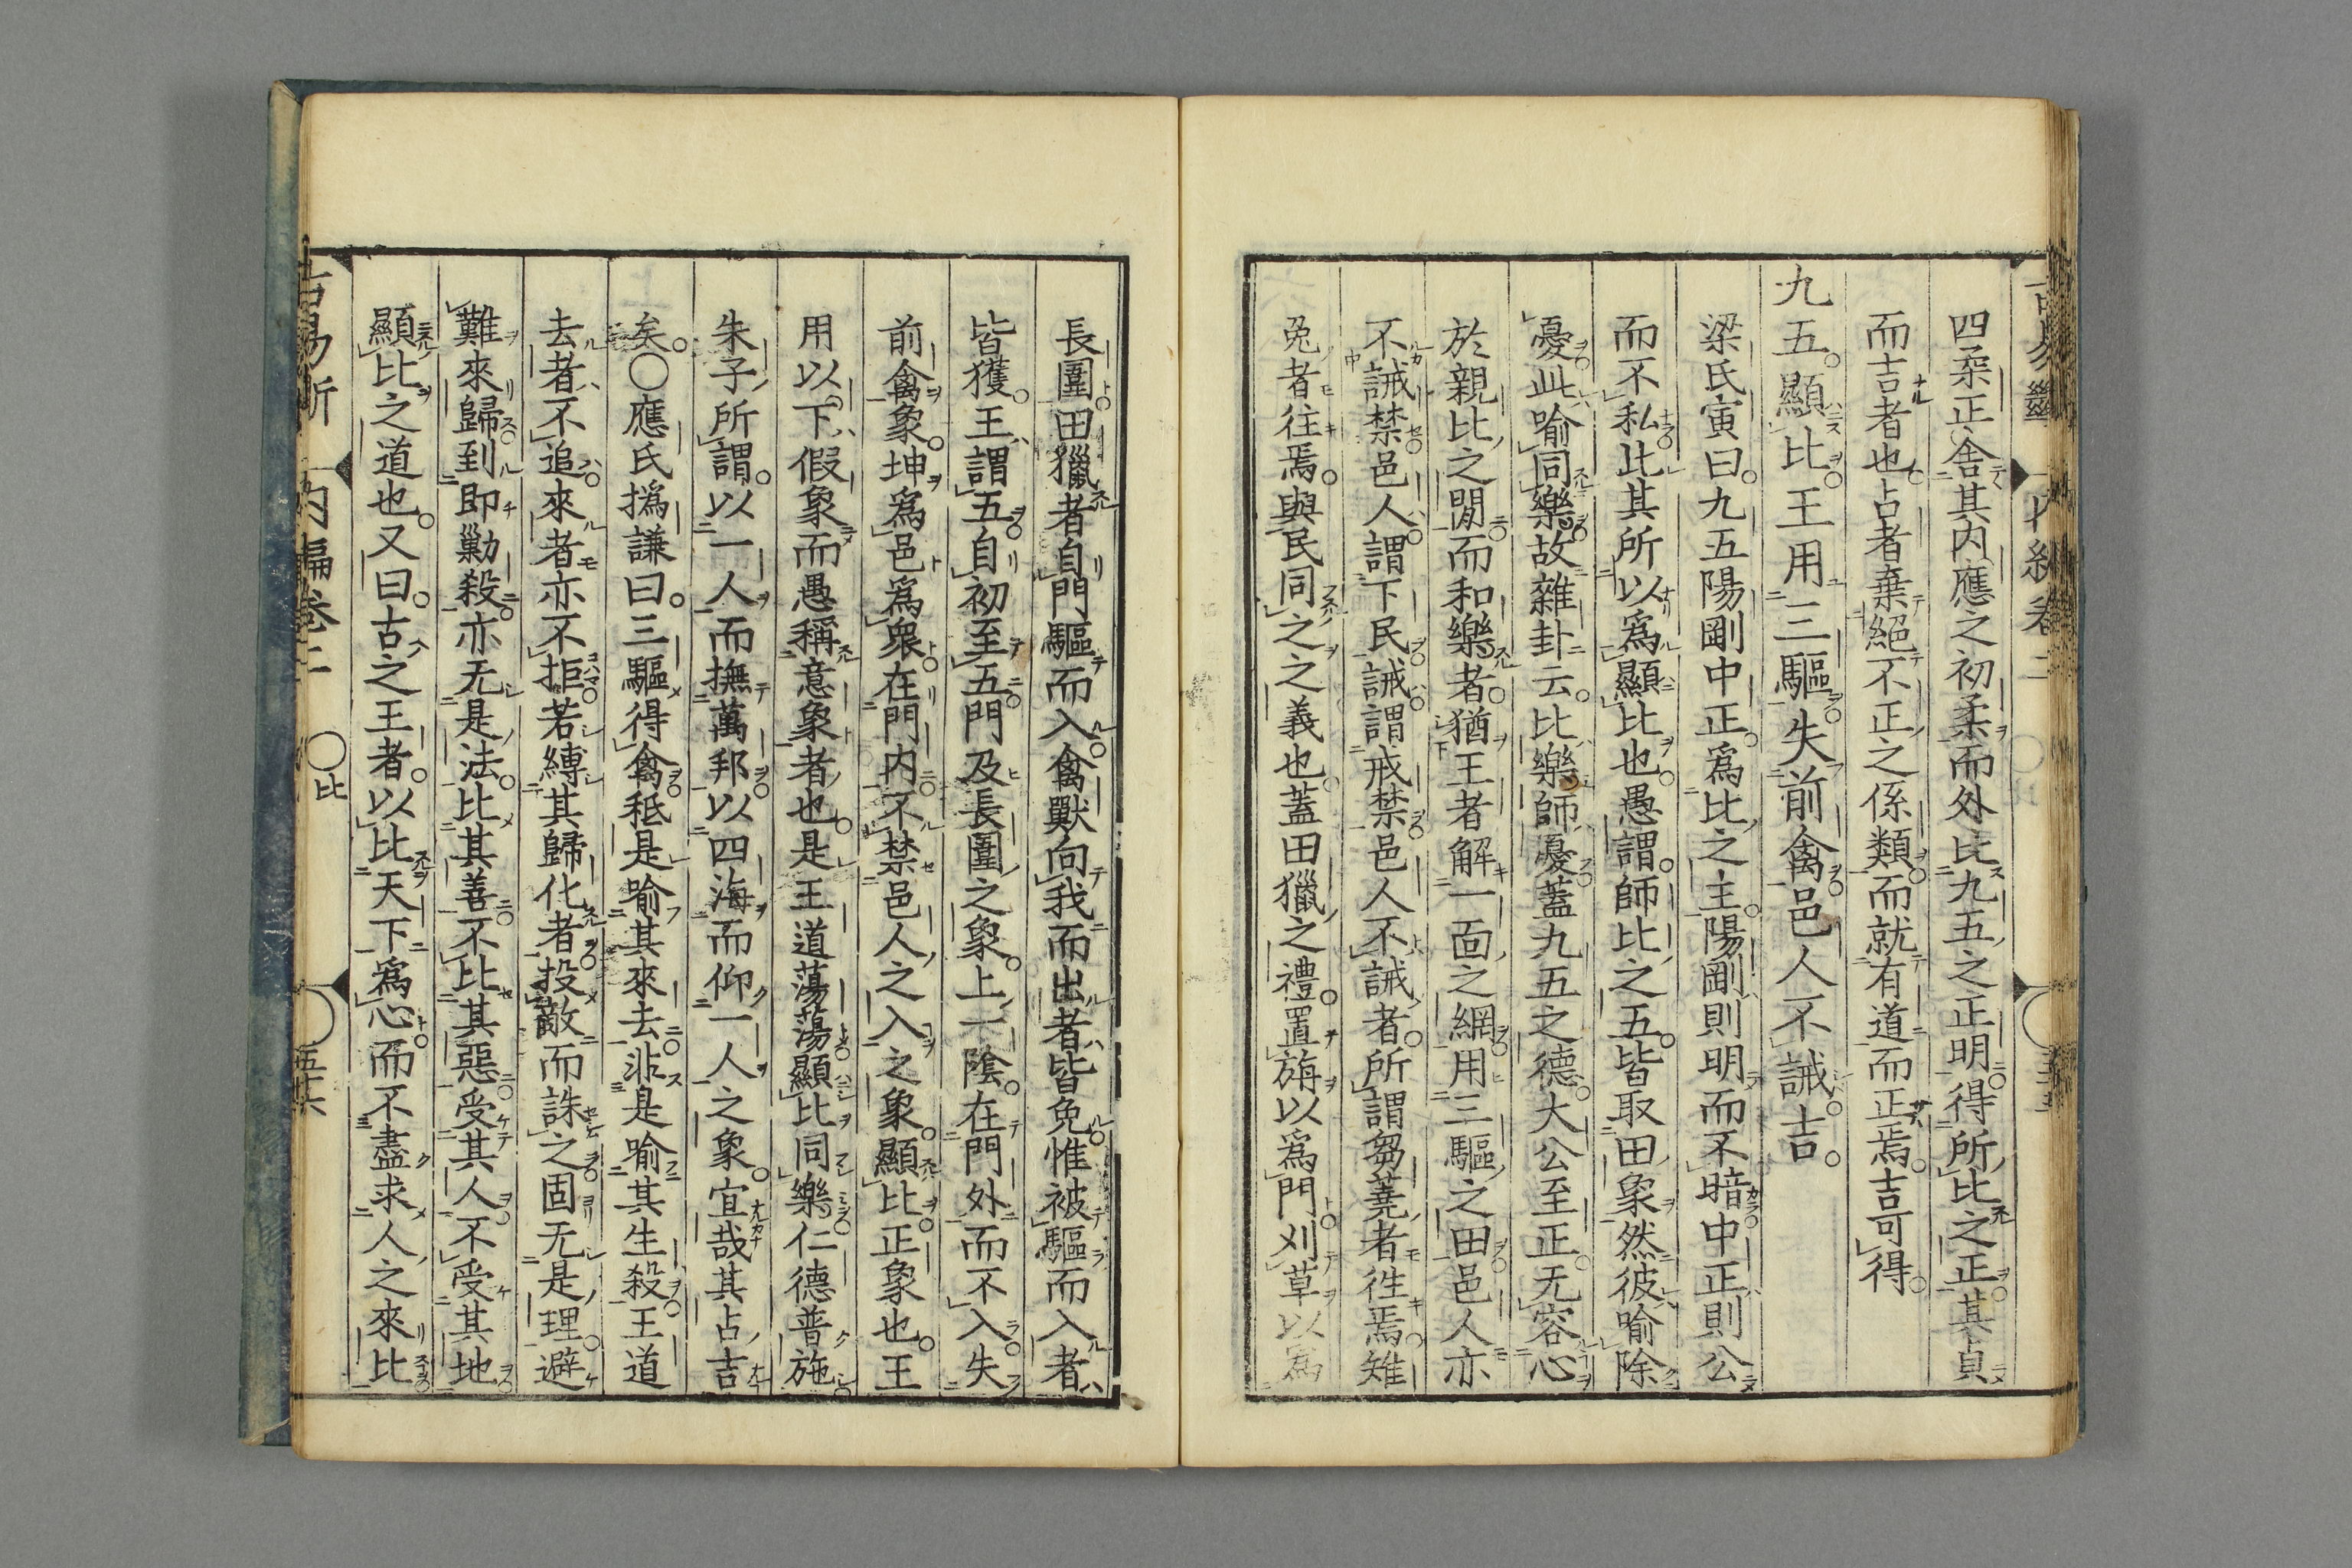 四柔正舍其内應之初柔而外比九五之正明得所比之正其貞
而吉者也占者棄絕不正之係類而就有道而正焉吉可得
九五顯比王用三驅失前禽邑人不誡吉
梁氏寅曰九五陽剛中正爲比之主陽剛則明而不暗中正則公
而不私此其所以爲顯比也愚謂師比之五皆取田象然彼喻除
憂此喻同樂故雜卦云比樂師憂蓋九五之德大公至正无容心
於親比之間而和樂者猶王者解一面之網用三驅之田邑人亦
不誡禁邑人謂下民誡謂戒禁邑人不誡者所謂芻蕘者往焉雉
兔者往焉與民同之之義也蓋田獵之禮置旃以爲門刈草以爲
長圍田獵者自門驅而入禽獸向我而出者皆免惟被驅而入者
皆獲王謂五自初至五門及長圍之象上一陰在門外而不入失
前禽象坤爲邑爲衆在門内不禁邑人之入之象顯比正象也王
用以下假象而愚稱意象者也是王道蕩蕩顯比同樂仁德普施
朱子所謂以一人而撫萬邦以四海而仰一人之象宜哉其占吉
矣○應氏撝謙曰三驅得禽秖是喻其來去非是喻其生殺王道
去者不追來者亦不拒若縛其歸化者投敵而誅之固无是理避
難來歸到即勦殺亦无是法比其善不比其惡受其人不受其地
顯比之道也又曰古之王者以比天下爲心而不盡求人之來比
古易斷 内編卷二 ○比 五十六